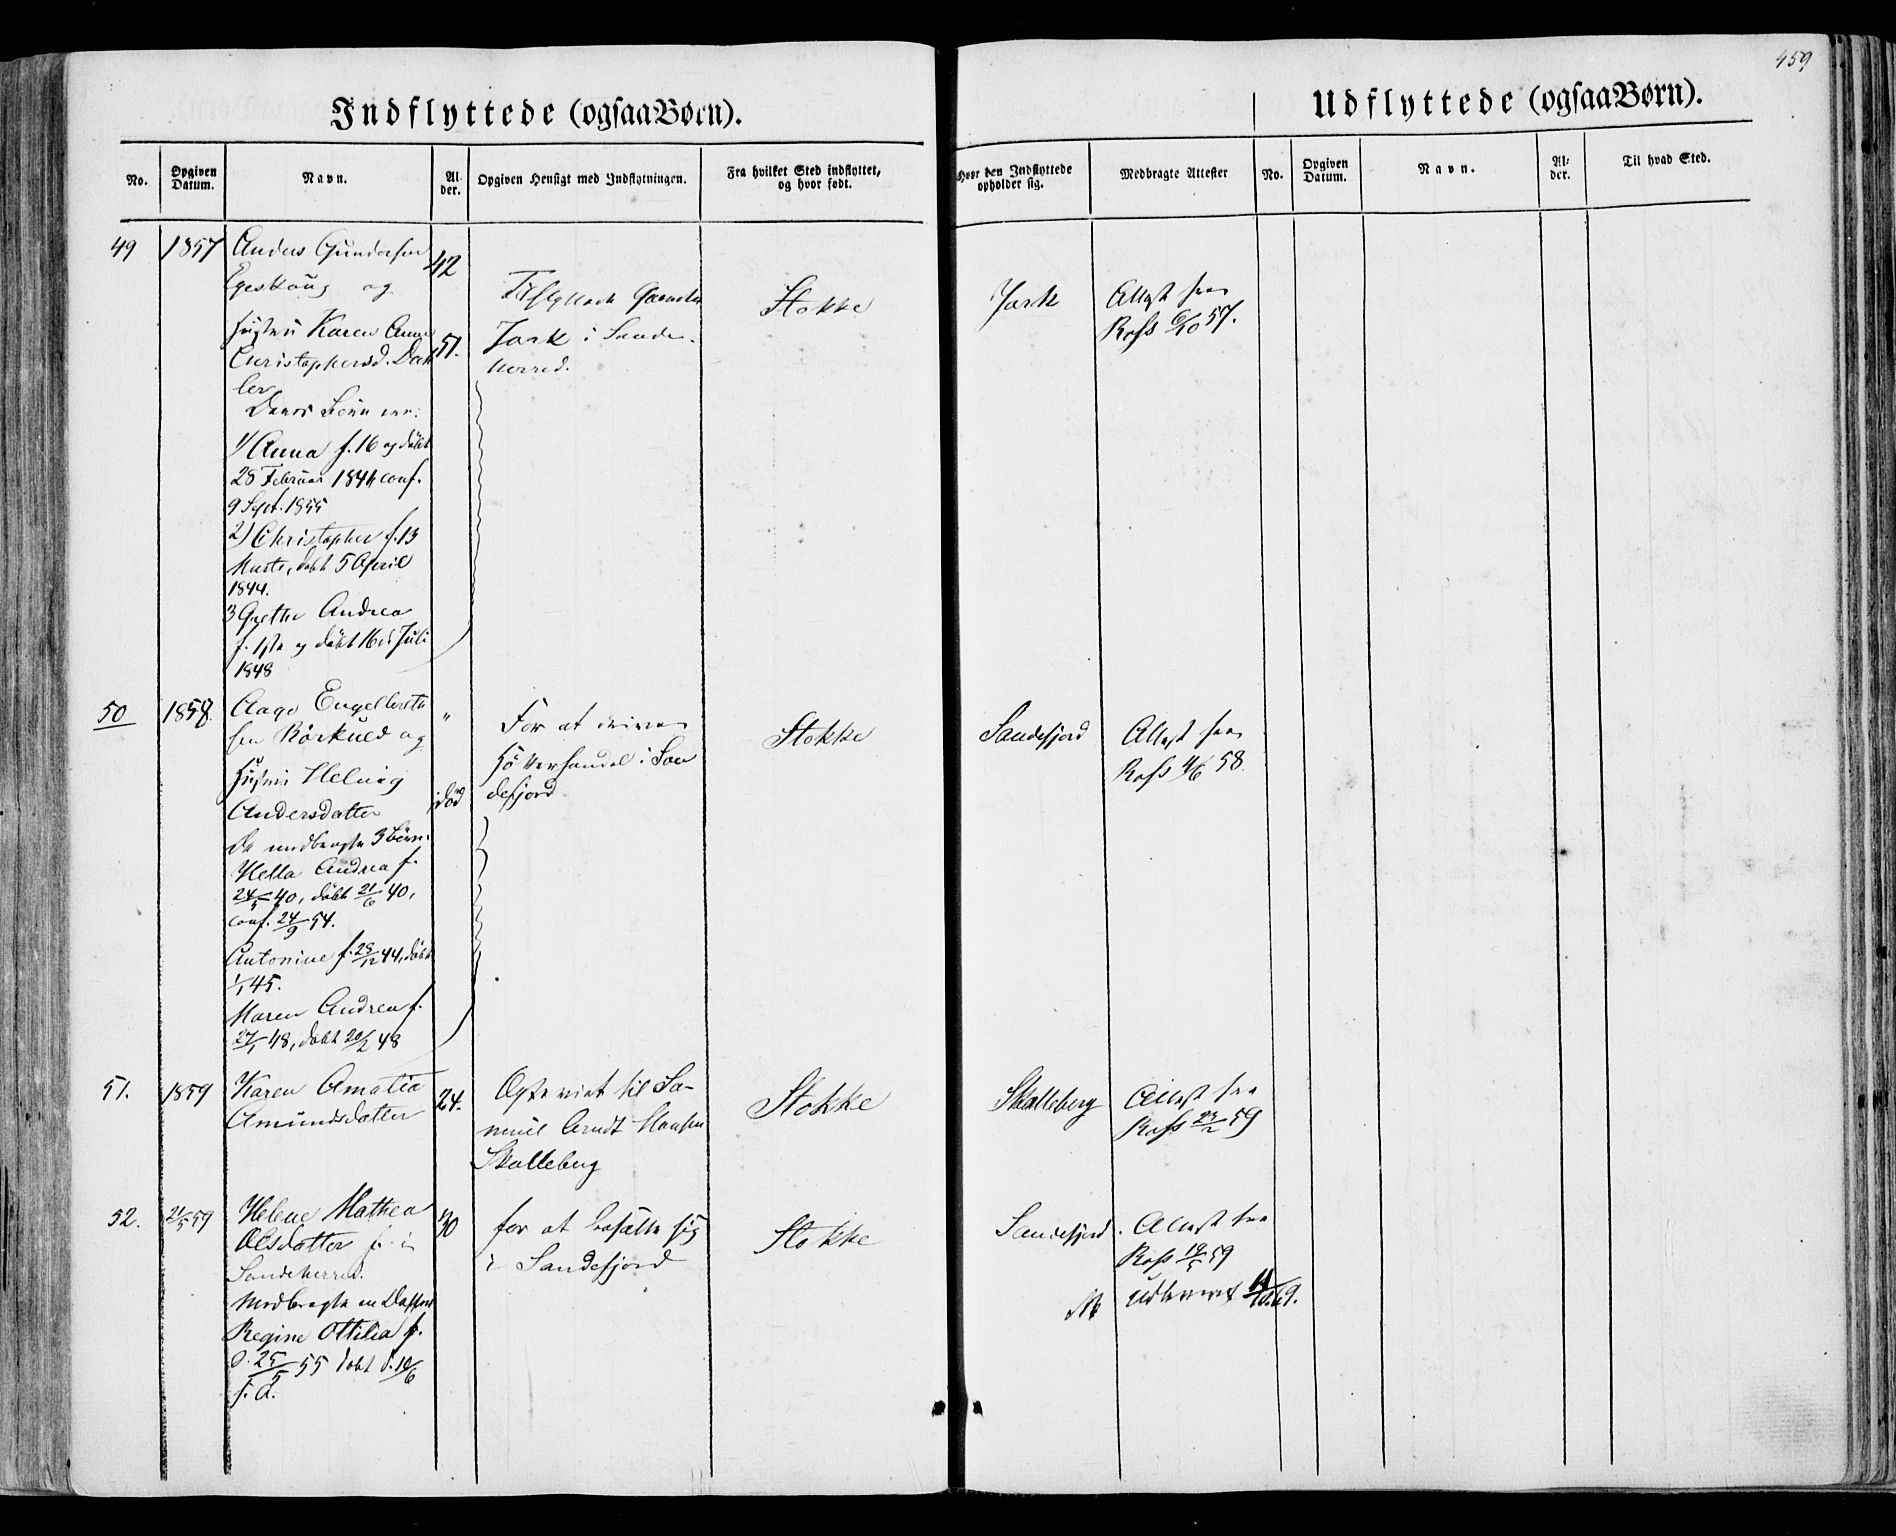 459
Indflyttede (ogsaa Børn).
Udflyttede (ogsaa Børn).
No.
Opgiven Datum.
Navn.
Al-
der.
Opgiven Hensigt med Indflytningen.
Fra hvilket Sted indflyttet,
og hvor født.
Hvor den Indflyttede
opholder sig.
Medbragte Attester
No.
Opgiven
Datum.
Navn.
Al-
der.
Til hvad Sted.
49
1857
Anders Gundersen
og
Hustru Karen Anne
Christophersd.
Deres Børn ere:
1) Anna f. 16 og døbt
28 Februar 1841 conf.
9 Sept. 1855
2) Christopher f. 13
Marts, døbt 5 April
1844.
3 Grethe Andrea
f. 1ste og døbt 16de Juli
1848
42
51.
Tilflyttede Gaarden
Jork i Sande-
herred.
Stokke
Jork
Attest fra
Rofs 6/10 57.
50
1858.
Aage Engelbrets
sen og
Hustru Helvig
Andersdatter
De medbragte 3 Børn.
Hella Andrea f.
24/5 40, døbt 21/6 40,
conf. 24/9 54.
Antonine f. 28/12 44, døbt
1/1 45.
Maren Andrea f.
27/1 48, døbt 20/2 48
"
død
For at drive
Høkerhandel i San
defjord
Stokke
Sandefjord
Attest fra
Rofs 4/6 58.
51.
1859
Karen Amalia
Amundsdatter
24.
Ægteviet til Sa-
muel Arndt Hansen
Skalleberg
Stokke
Skalleberg
Attest fra
Rofs 23/2 59
52.
21/5 59
Helene Mathea
Olsdatter f. i
Sandeherred.
Medbragte en Datter
Regine Ottilia f.
d. 25/5 55 døbt d. 10/6
s. A.
30
for at bosætte sig
i Sandefjord
Stokke
Sandefjord.
Attest fra
Rofs 19/5 59
Udleveret 11/10.69.